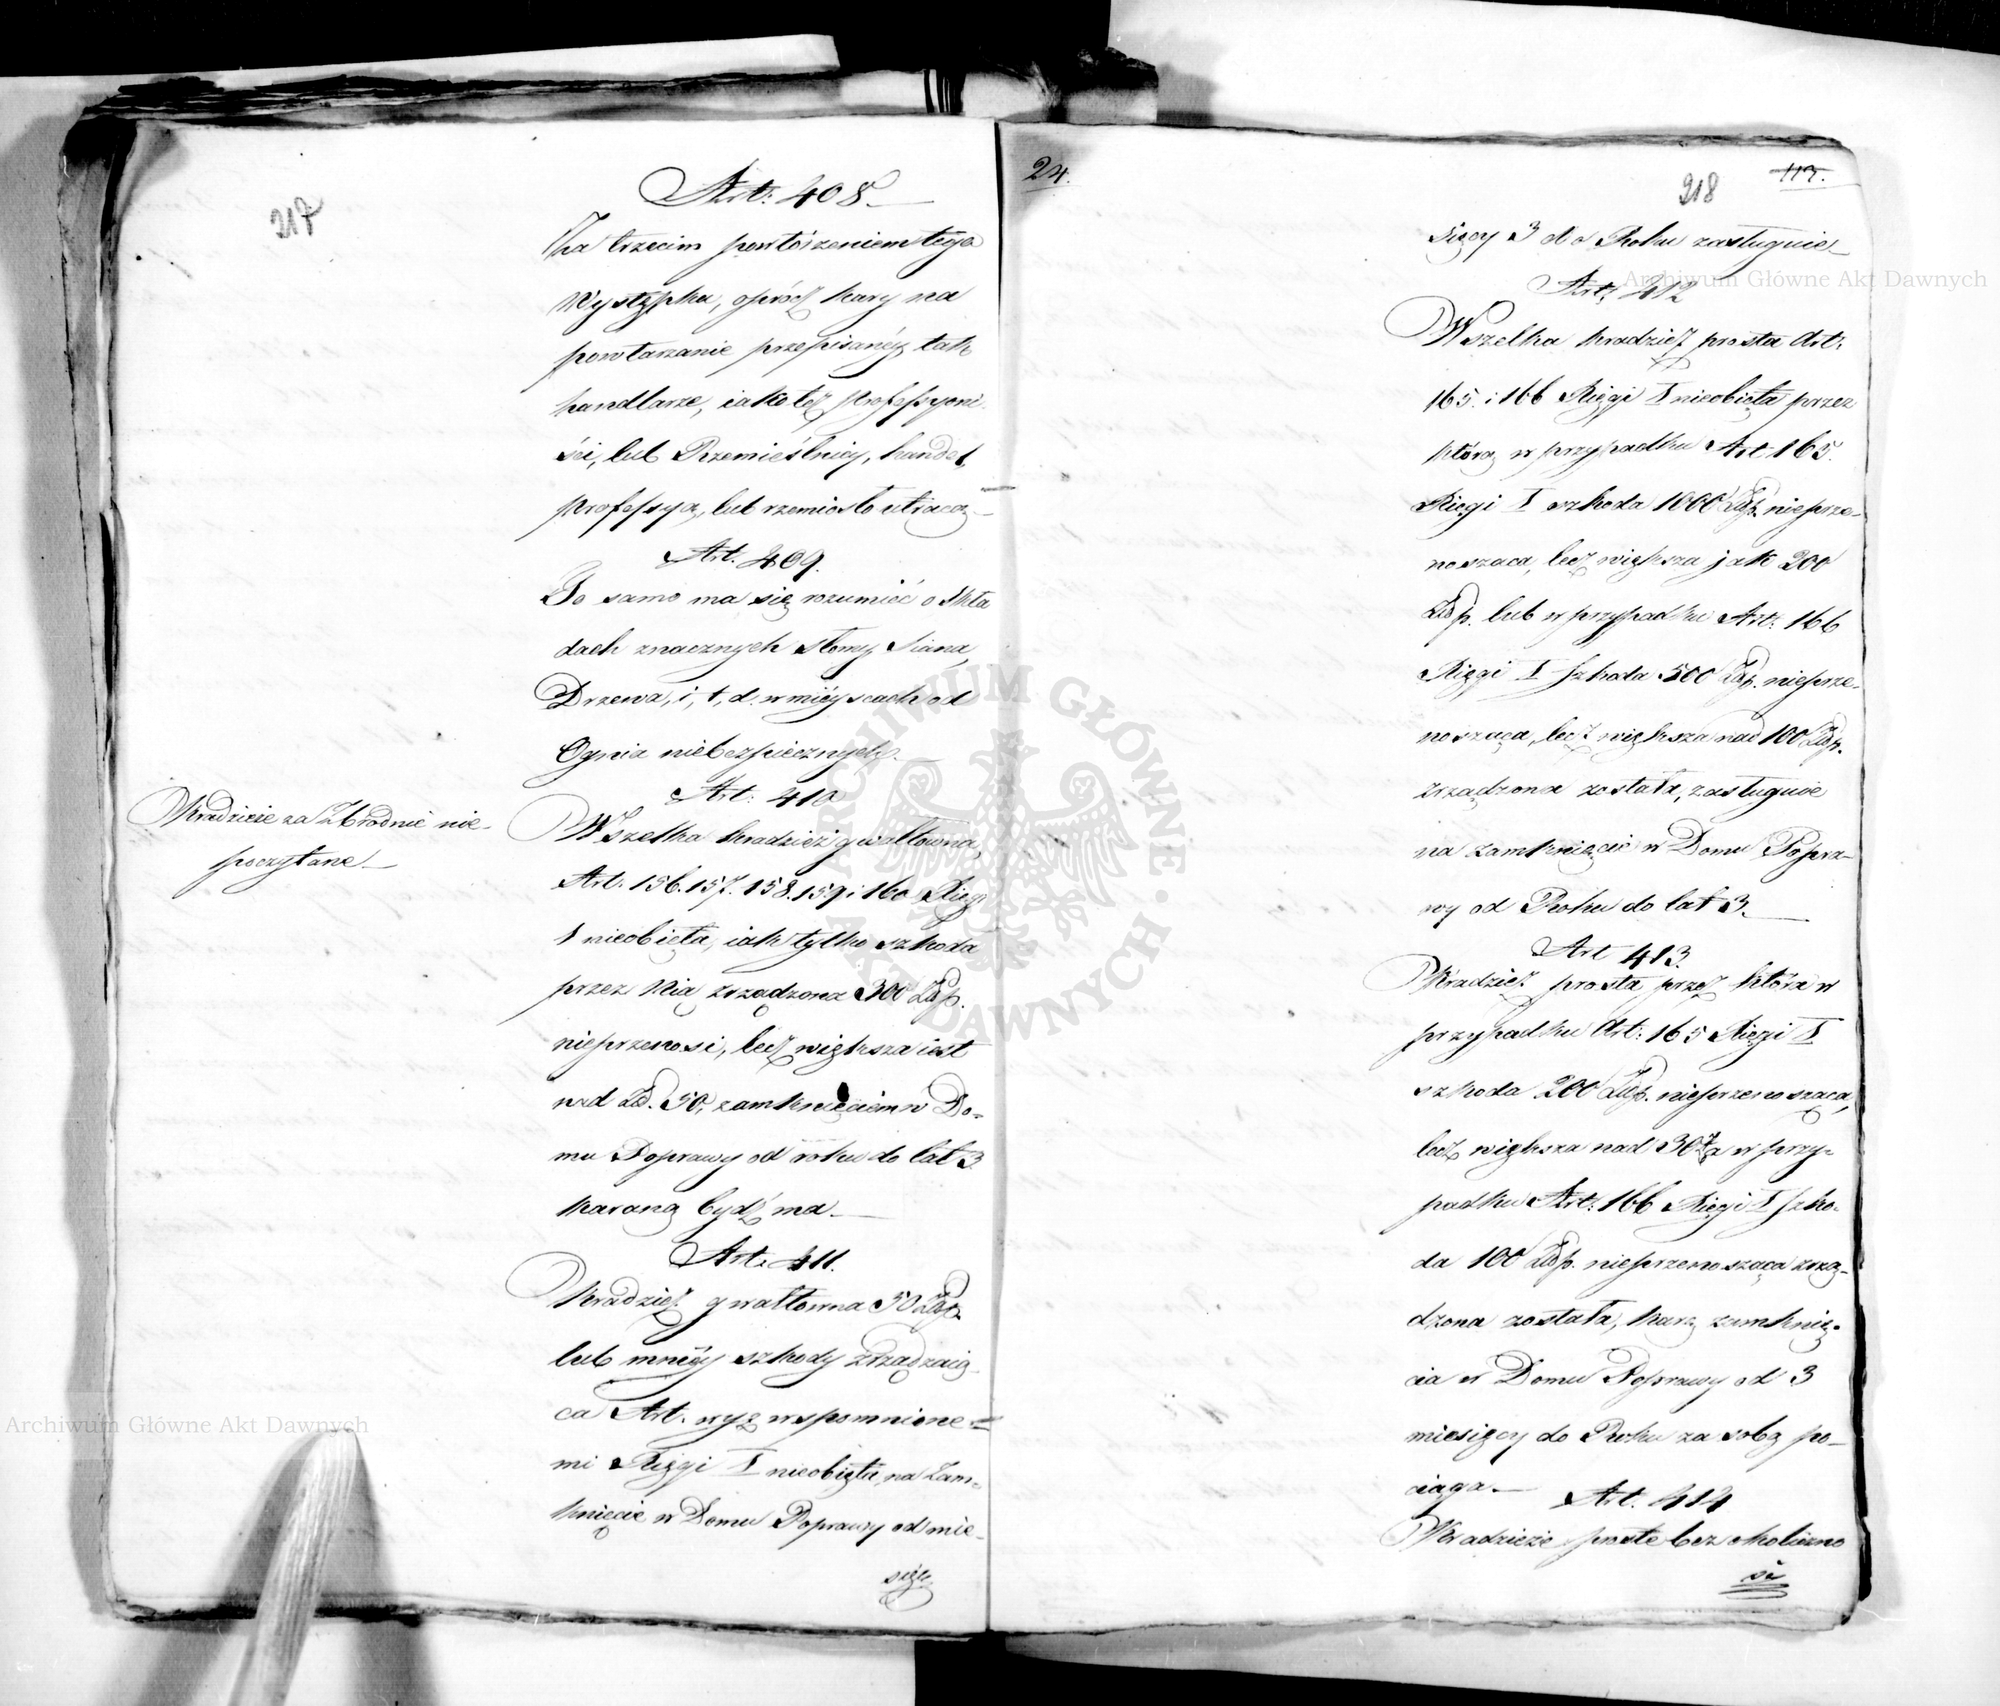 217
Art: 408
Za trzecim powtórzeniem tego
Występku, oprócz kary na
powtarzanie przepisanéy tak
handlarze, iako też Professyoni-
ści, lub Rzemieślnicy, handel,
professyą, lub rzemiosło utracą
Art. 409.
To samo ma się rozumieć o Skła
dach znacznych słomy, Siana,
Drzewa, i, t, d. w mieyscach od
Ognia niebezpiecznych.
Kradzieże za Zbrodnie nie-
poczytane
Art: 410
Wszelka kradzież gwałtowna,
Art: 156. 157. 158. 159 i 160 Xięgi
I nieobięta, iak tylko szkoda
przez nią zrządzona 300 Złp.
nieprzenosi, lecz większa iest
nad Zł. 50, zamknięciem w Do-
mu Poprawy od roku do lat 3
karaną bydź ma.
Art. 411.
Kradzież gwałtowna 50 Złp.
lub mniéy szkody zrządzaią-
ca Art. wyż wspomnione-
mi Xięgi I nieobięta, na Zam-
knięcie w Domu Poprawy od mie-
sięc
24.
113.
218
sięcy 3 do Roku zasługuie
Art: 412
Wszelka kradzież prosta Art.
165. i 166 Xięgi I nieobięta przez
którą w przypadku Art. 165.
Xięgi I szkoda 1000 Złp. nieprze-
nosząca, lecz większa jak 200
Złp. lub w przypadku Art: 166
Xięgi I szkoda 500 Złp. nieprze-
nosząca, lecz większa nad 100 Złp.
zrządzona została, zasługuie
na zamknięcie w Domu Popra-
wy od Roku do lat 3.
Art 413.
Kradzież prosta przez którą w
przypadku Art: 165 Xięgi I
szkoda 200 Złp. nieprzenosząca,
lecz większa nad 30 a w przy-
padku Art: 166 Xięgi I szko-
da 100 Złp. nieprzenosząca zrzą-
dzona została, karę zamknię-
cia w Domu Poprawy od 3
miesięcy do Roku za sobą po-
ciąga.
Art. 414
Kradzieże proste bez okoliczno
ści
Archiwum Główne Akt Dawnych
Archiwum Główne Akt Dawnych
ARCHIWUM GŁÓWNE AKT DAWNYCH